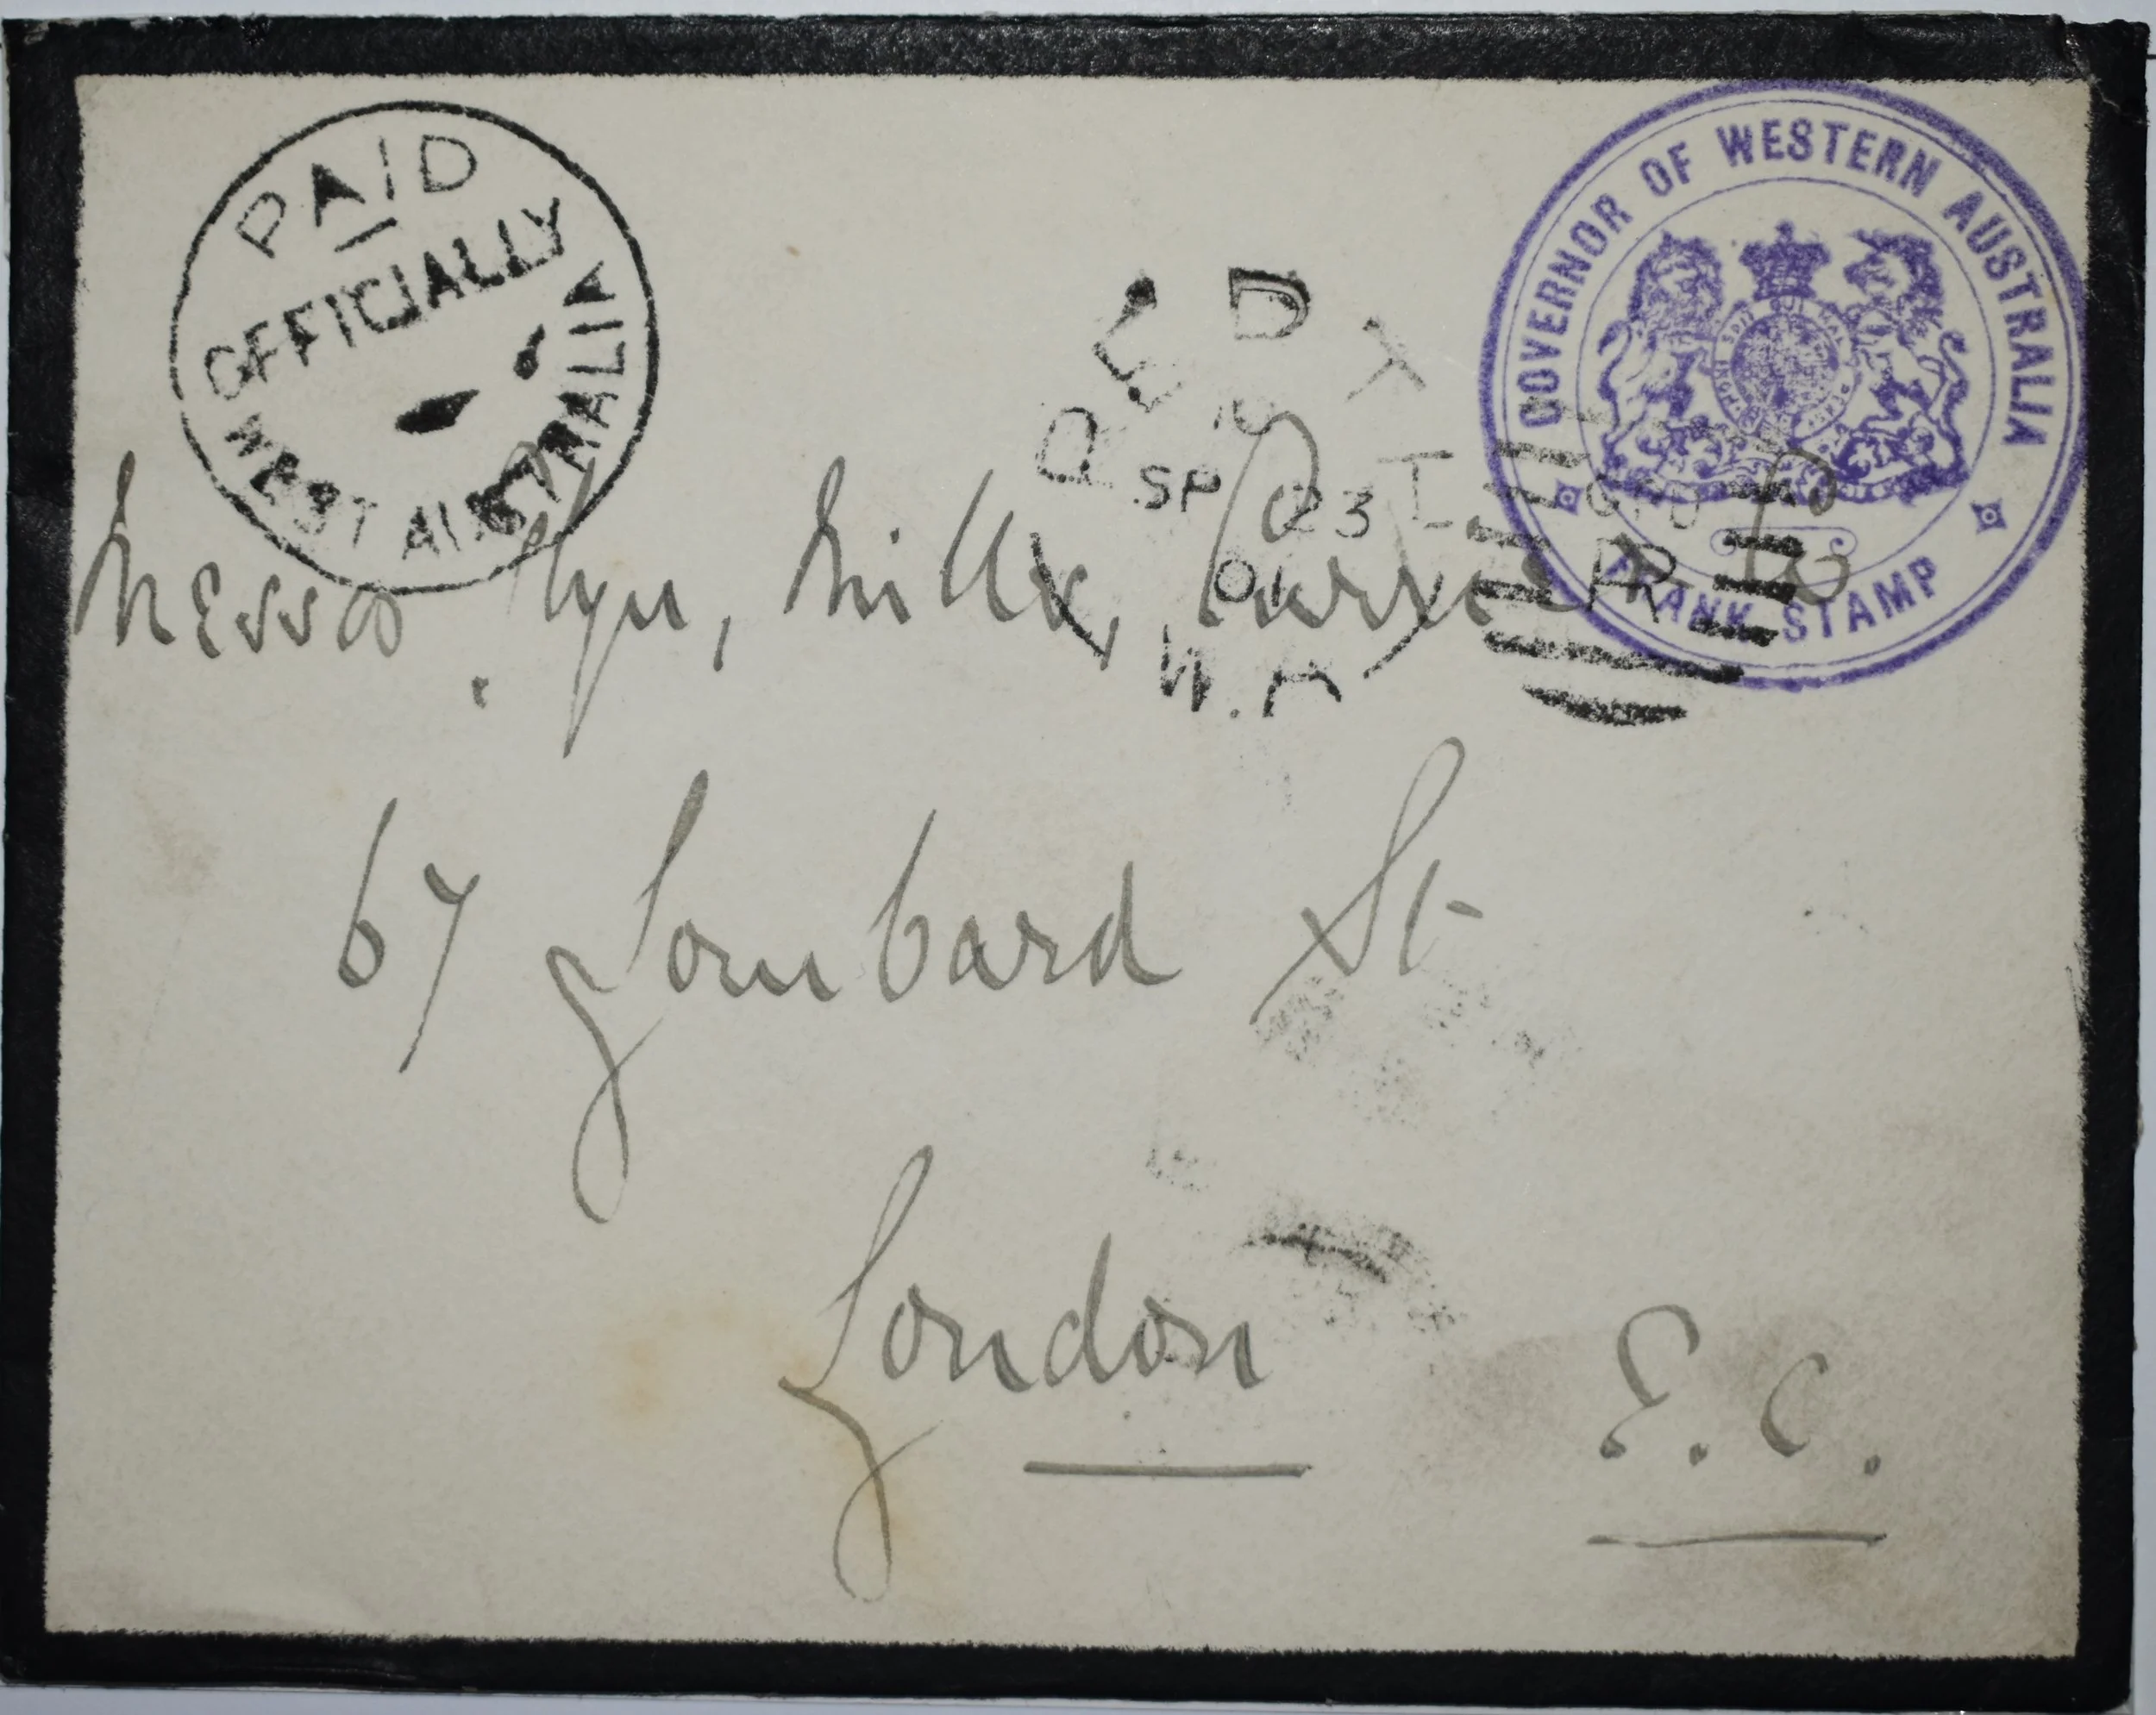 PAID
OFFICIALLY
WEST AUSTRALIA
GOVERNOR OF WESTERN AUSTRALIA
FRANK STAMP
SP 23
01
W.A
Messrs Glyn, Mills, Currie & Co
67 Lombard St
London
E.C.